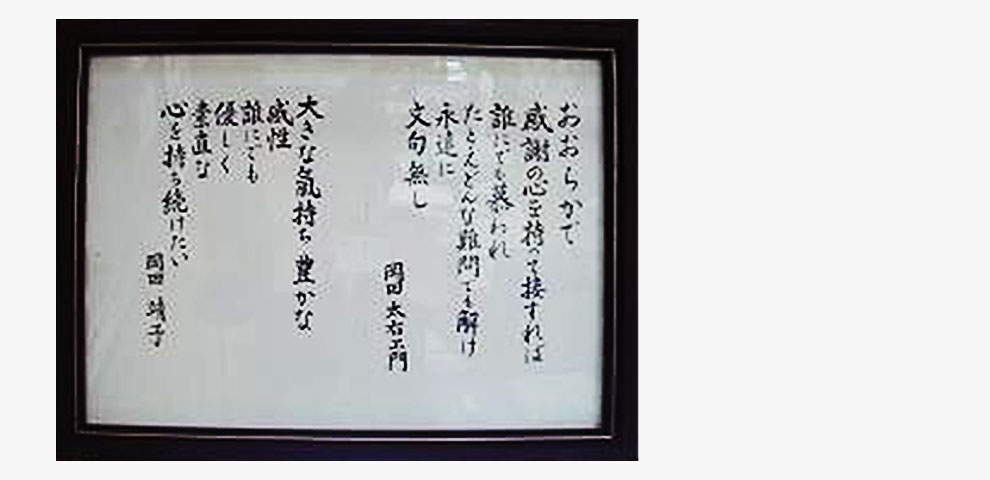 おおらかで
感謝の心を持って接すれば
誰にでも慕われ
たとえどんな難問でも解け
永遠に
文句無し
岡田 太右エ門
大きな氣持ち 豊かな
感性
誰にでも
優しく
素直な
心を持ち続けたい
岡田 靖子